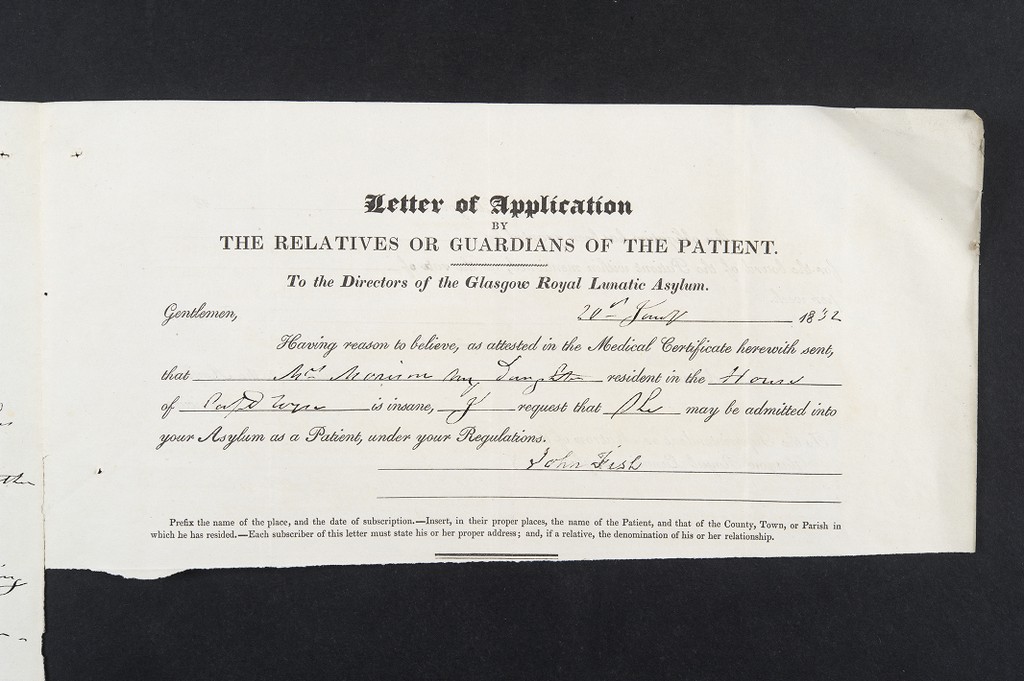 Letter of Application
BY
THE RELATIVES OR GUARDIANS OF THE PATIENT.
To the Directors of the Glasgow Royal Lunatic Asylum.
Gentlemen, 1832
Having reason to believe, as attested in the Medical Certificate herewith sent,
that Mrs Morison my Daughter resident in the House
of is insane, I request that She may be admitted into
your Asylum as a Patient, under your Regulations.
John Fish
Prefix the name of the place, and the date of subscription.—Insert, in their proper places, the name of the Patient, and that of the County, Town, or Parish in
which he has resided.—Each subscriber of this letter must state his or her proper address; and, if a relative, the denomination of his or her relationship.